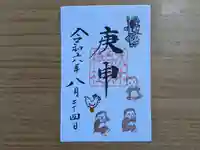 庚申
令和六年八月二十四日